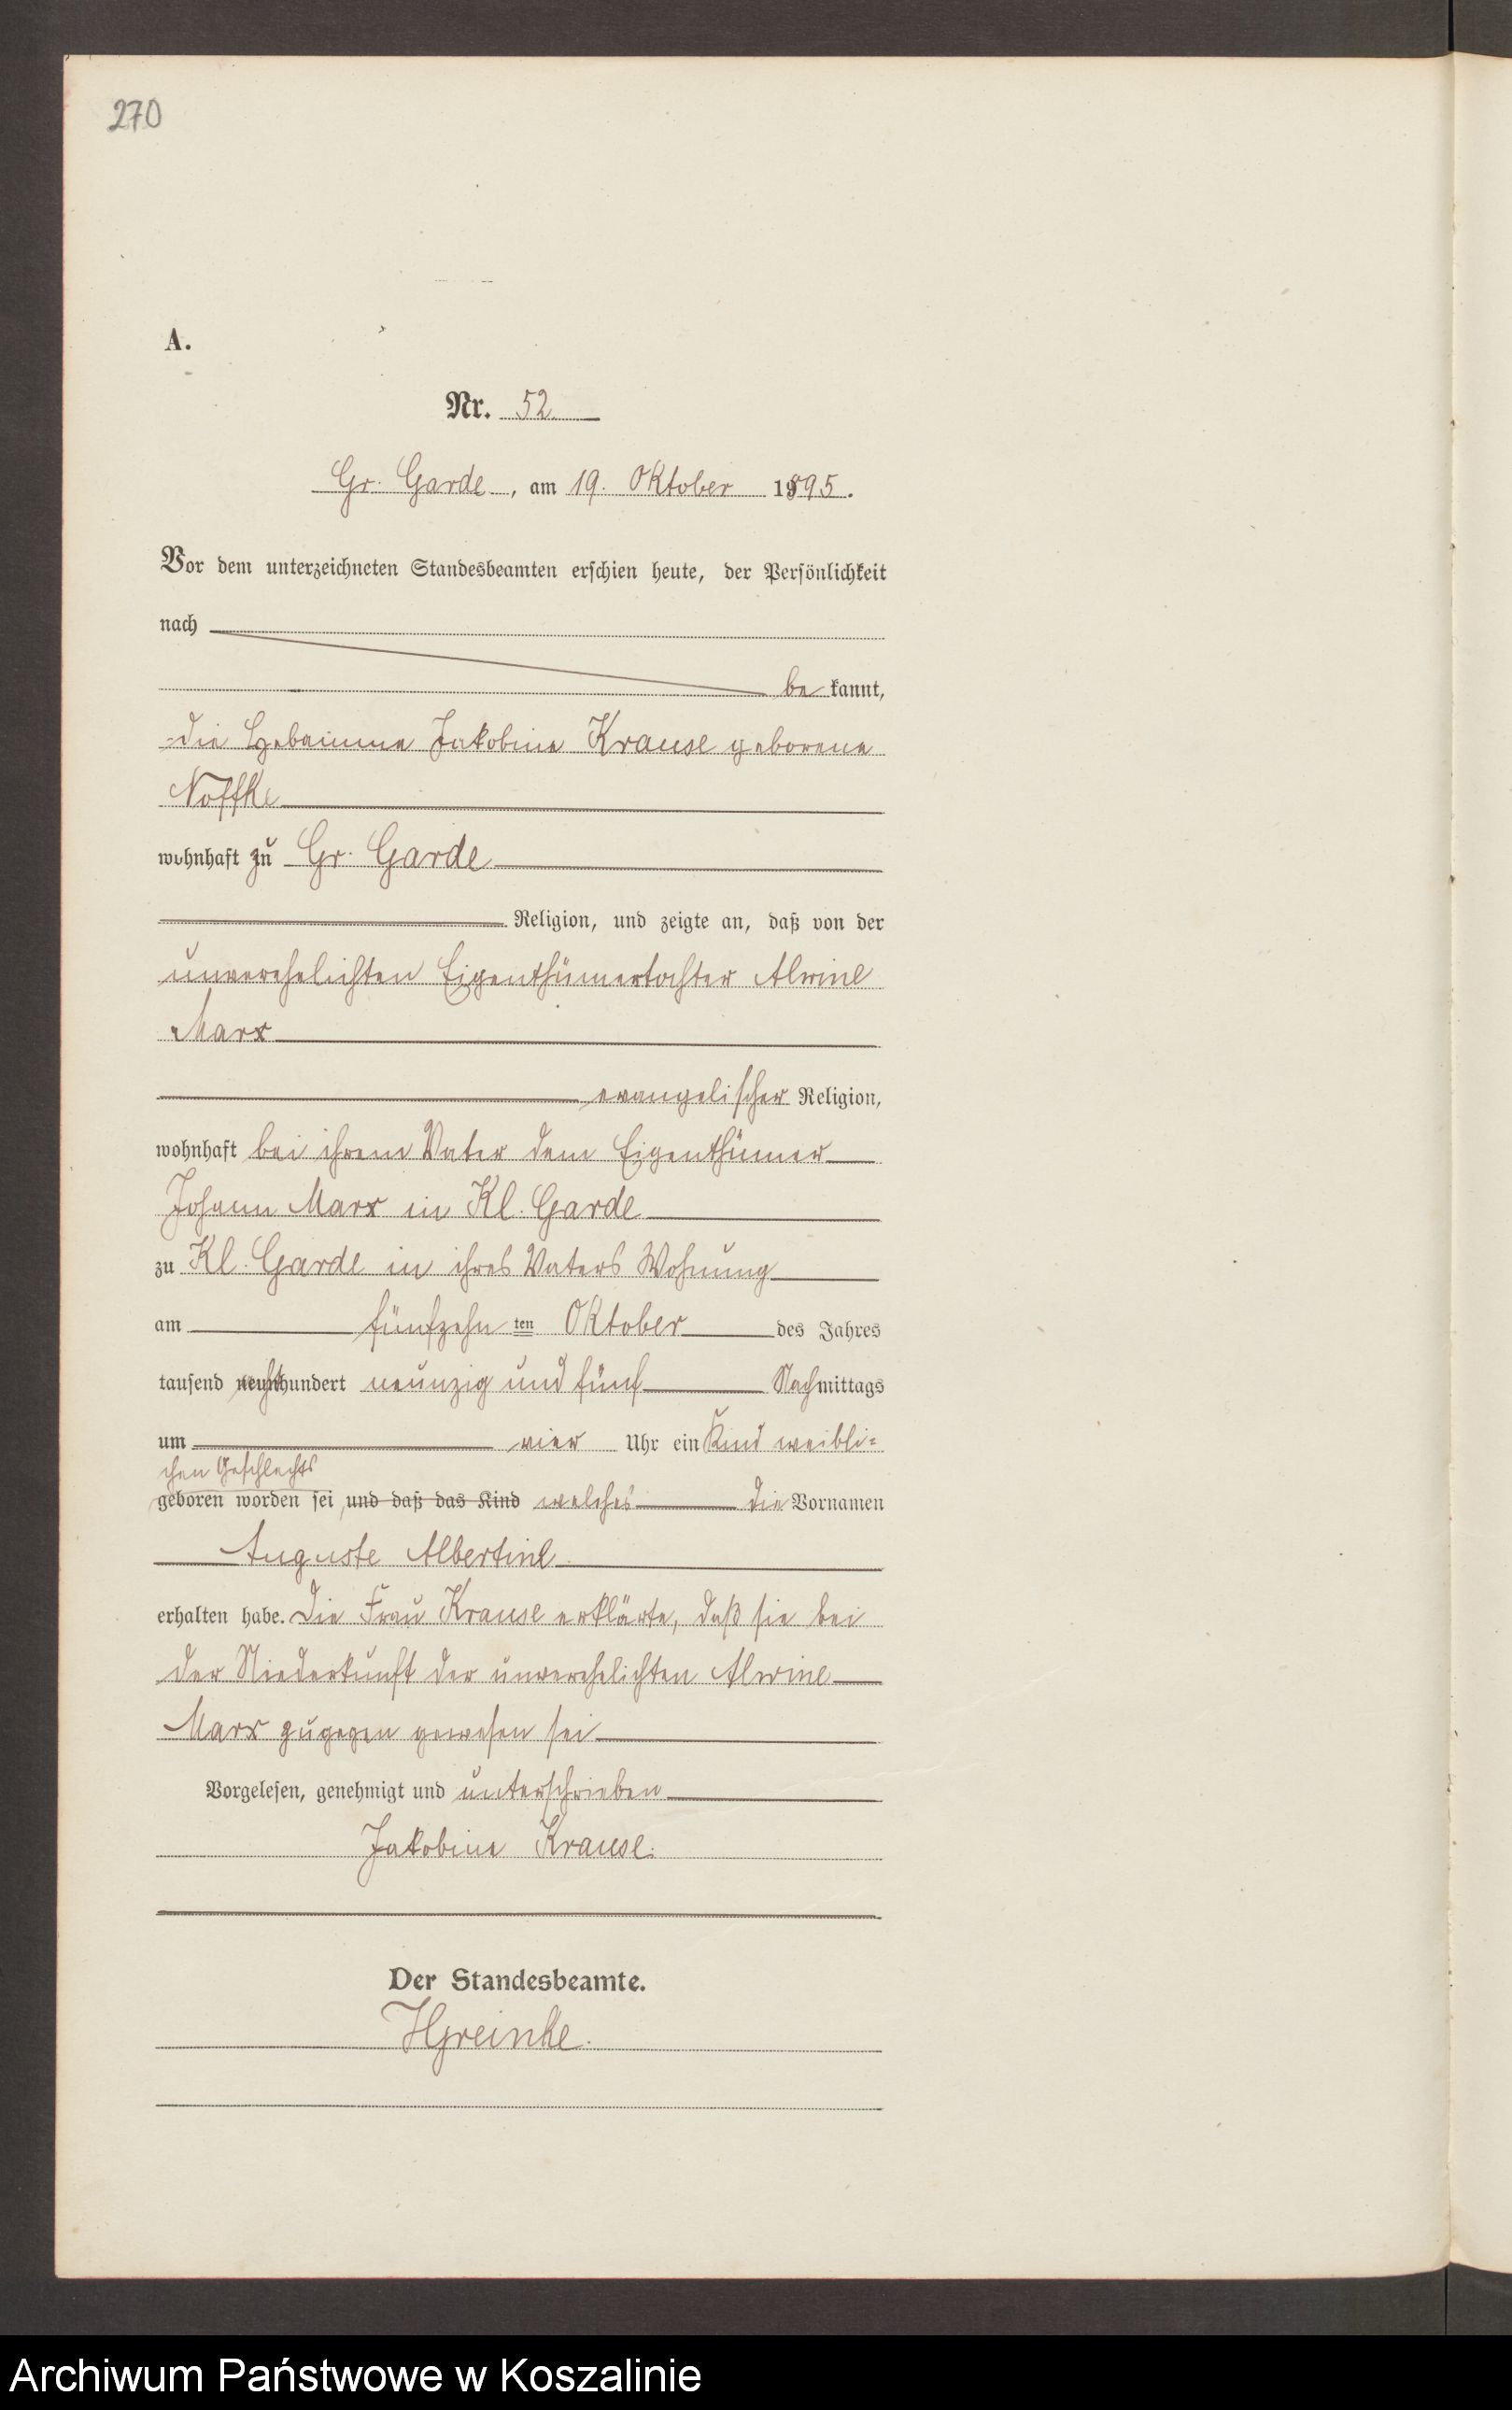 270
A.
Nr. 52
Gr. Garde, am 19. Oktober 1895.
Vor dem unterzeichneten Standesbeamten erschien heute, der Persönlichkeit
nach
be kannt,
die Hebamme Jakobine Krause geborene
Noffke
wohnhaft zu Gr. Garde
Religion, und zeigte an, daß von der
unverehelichten Eigenthümertochter Alwine
Marx
evangelischer Religion,
wohnhaft bei ihrem Vater dem Eigenthümer
Johann Marx in Kl. Garde
zu Kl. Garde in ihres Vaters Wohnung
am fünfzehn ten Oktober des Jahres
tausend achthundert neunzig und fünf Nachmittags
um vier Uhr ein Kind weibli=
chen Geschlechts
geboren worden sei, und daß das Kind welches die Vornamen
Auguste Albertine
erhalten habe. Die Frau Krause erklärte, daß sie bei
der Niederkunft der unverehelichten Alwine
Marx zugegen gewesen sei
Vorgelesen, genehmigt und unterschrieben
Jakobine Krause.
Der Standesbeamte.
HGreinke.
Archiwum Państwowe w Koszalinie